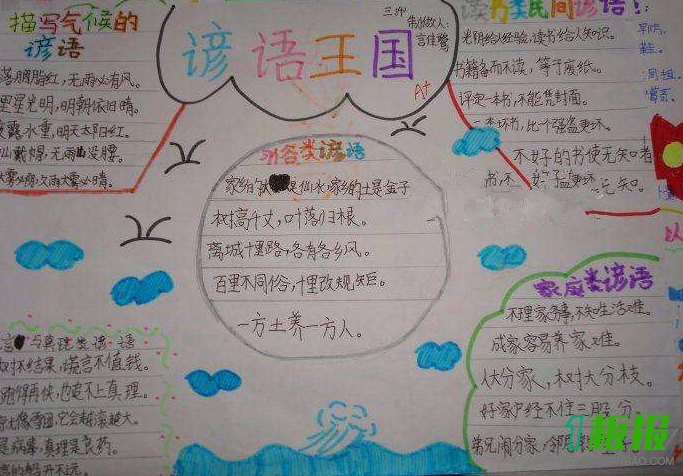 描写气候的
谚语
落胭脂红，无雨必有风。
星光明，明朝依旧晴。
露水重，明天太阳红。
山戴帽，无雨没腰。
必晴。
三
制做人：
谚语王国
A+
读书类民间谚语！
光阴给人经验，读书给人知识。
书籍备而不读，等于废纸。
评定一本书，不能凭封面。
一本坏书，比个强盗更坏。
不好的书使无知者
更无知。
风俗类谚语
家乡的水是仙水，家乡的土是金子
树高千丈，叶落归根。
离城十里路，各有各乡风。
百里不同俗，十里改规矩。
一方土养一方人。
家庭类谚语
不理家事，不知生活难。
成家容易养家难。
人大分家，树大分枝。
好家产经不住三股分。
弟兄闹分家，邻
与真理类谚语
树不结果，谎言不值钱。
跑得再快，也追不上真理。
像雪团，它会越滚越大。
是病毒，真理是良药。
1板报